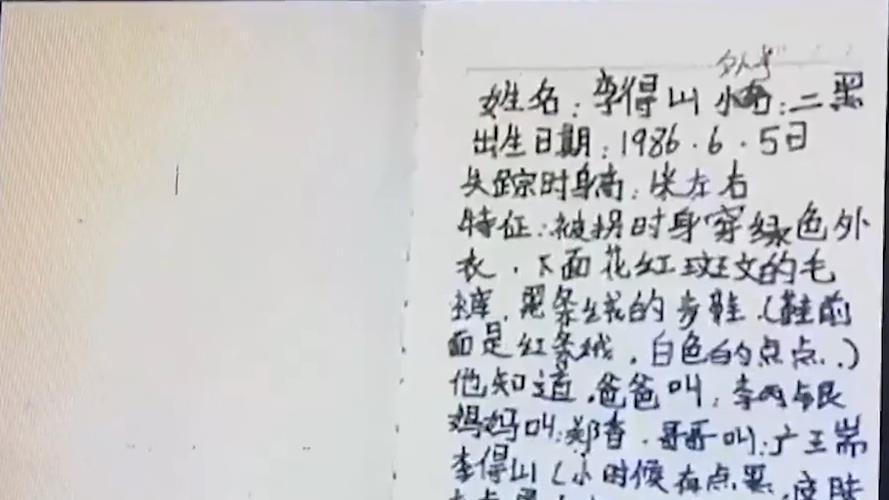 外号
姓名：李得山 小名：二黑
出生日期：1986．6．5日
失踪时身高：米左右
特征：被拐时身穿绿色外
衣．下面花红斑文的毛
裤．黑条绒的步鞋．（鞋前
面是红条绒．白色的点点．．）
他知道．爸爸叫：李
妈妈叫：郑香．哥哥叫：
李得山（小时候有点黑．皮肤